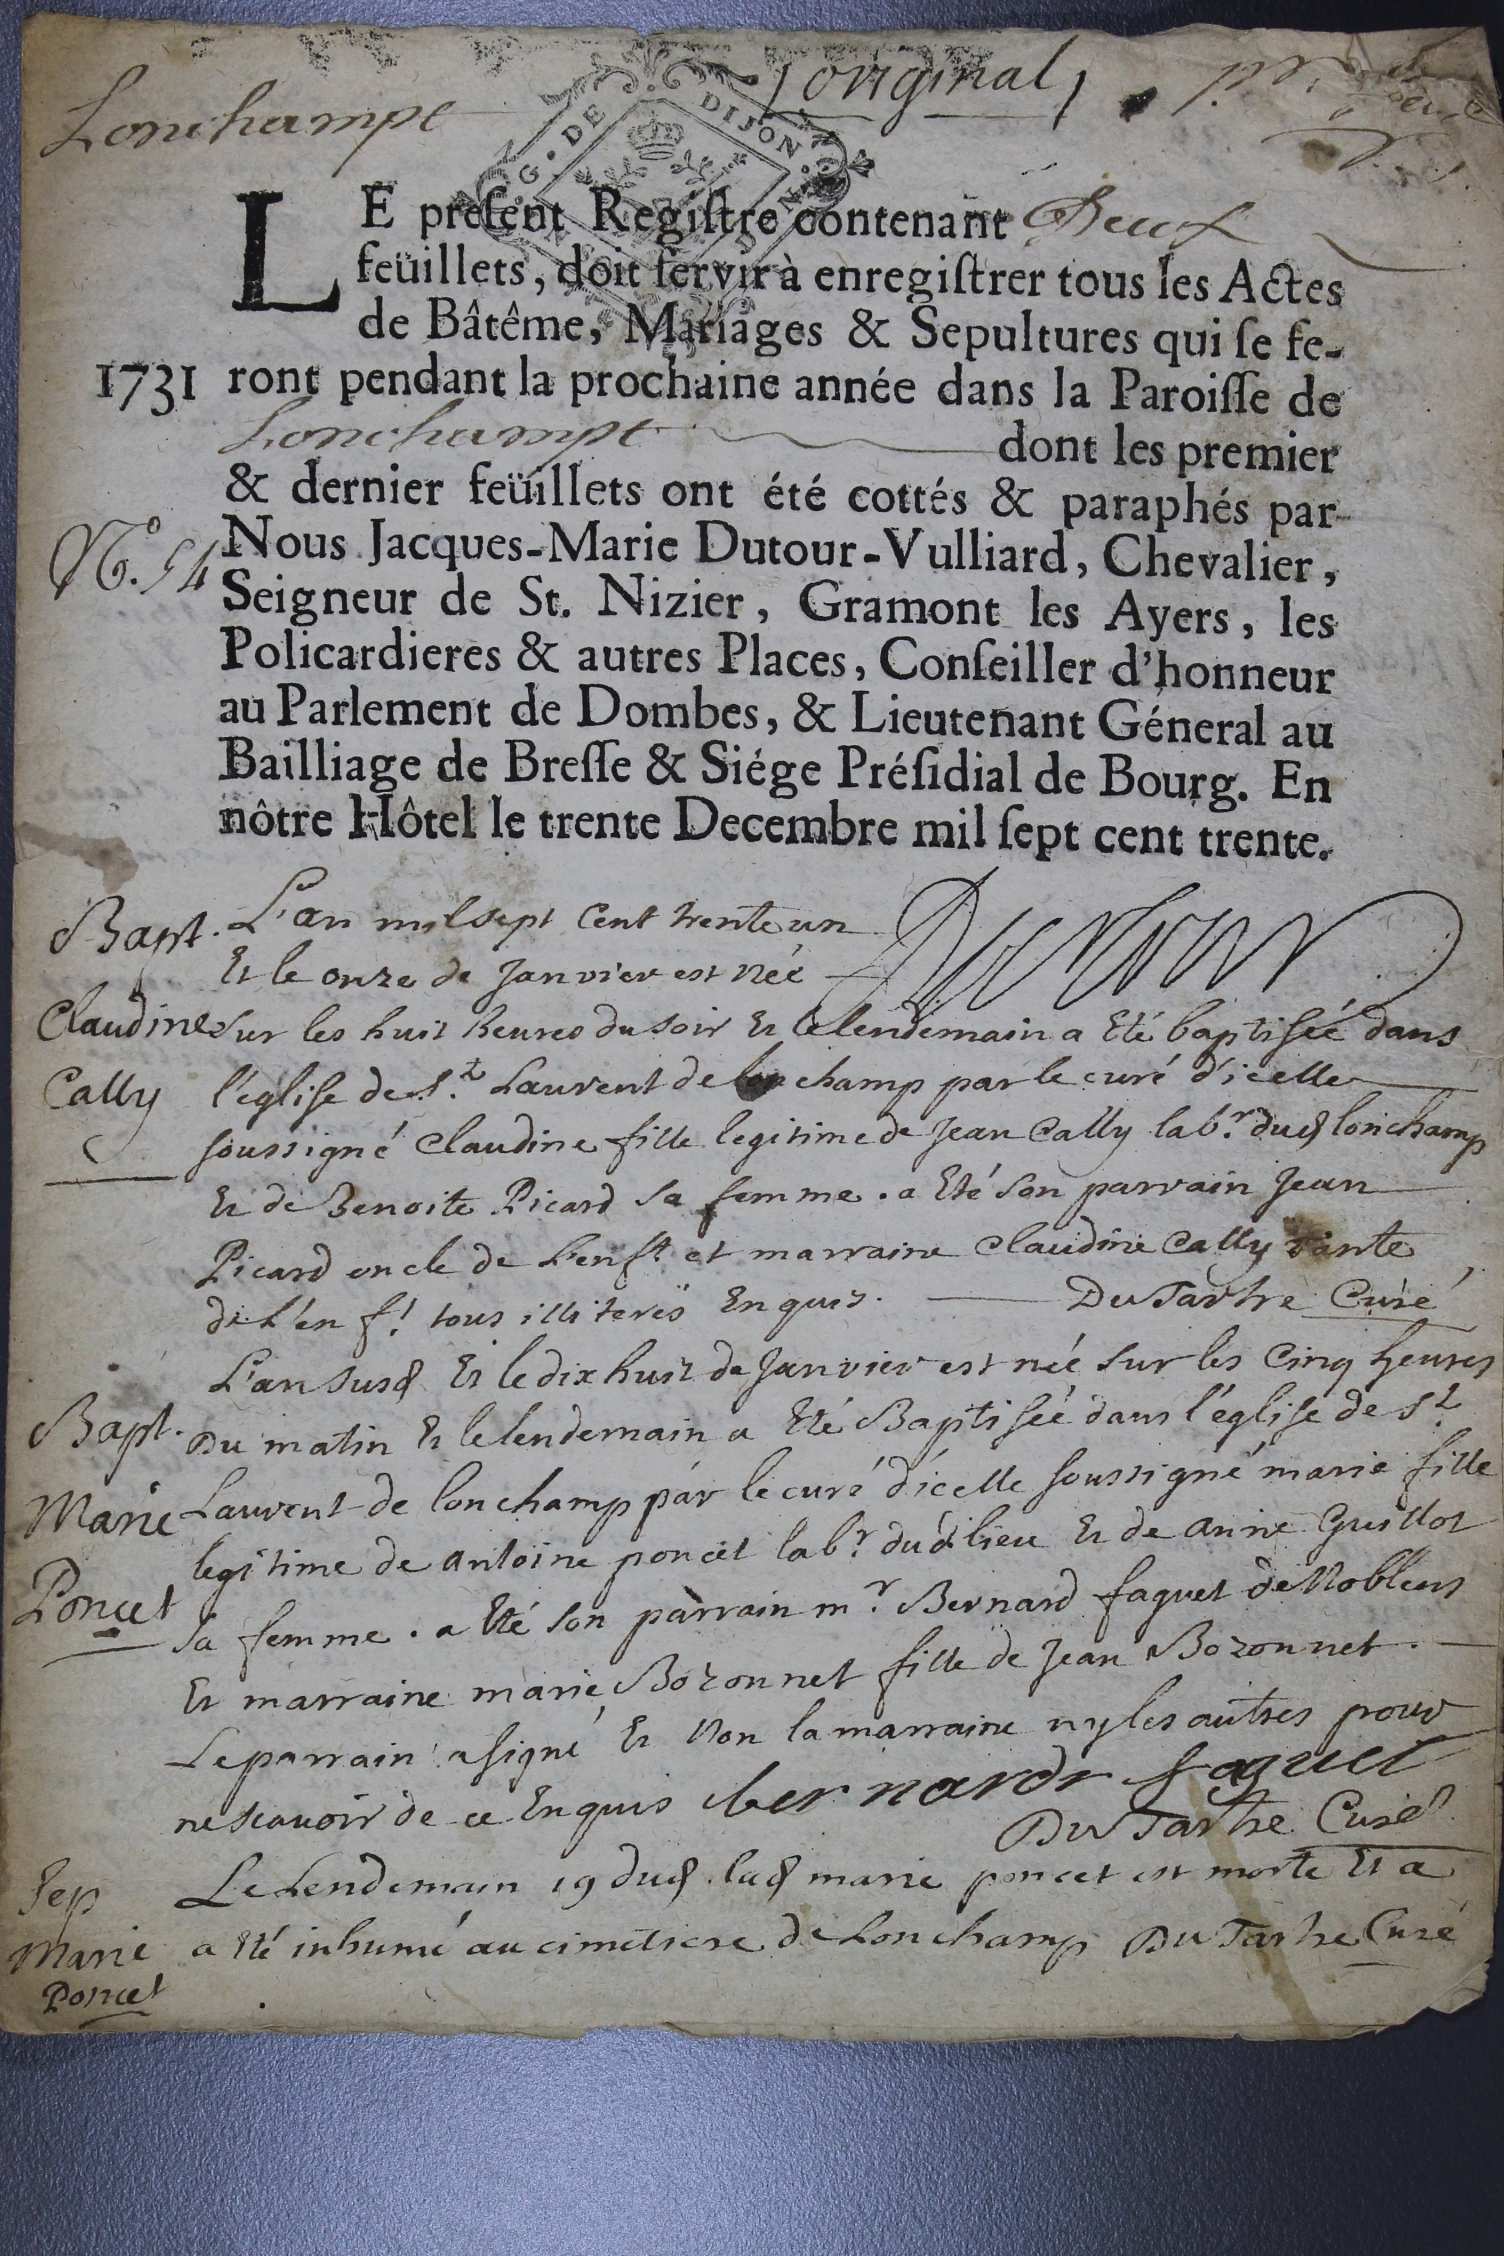 Lonchampt
original
G. DE DIJON
LE preſent Regiſtre contenant Deux
feüillets, doit ſervir à enregiſtrer tous les Actes
de Bâtême, Mariages & Sepultures qui ſe fe-
1731 ront pendant la prochaine année dans la Paroiſſe de
Lonchampt dont les premier
& dernier feüillets ont été cottés & paraphés par
Nº. 54
Nous Jacques-Marie Dutour-Vulliard, Chevalier,
Seigneur de St. Nizier, Gramont les Ayers, les
Policardieres & autres Places, Conſeiller d'honneur
au Parlement de Dombes, & Lieutenant Géneral au
Bailliage de Breſſe & Siége Préſidial de Bourg. En
nôtre Hôtel le trente Decembre mil ſept cent trente.
Bapt. L'an mil sept Cent trente un
Et le onze de Janvier est née
Claudine sur les huit heures du soir Et le lendemain a Eté baptisée dans
Cally l'église de St. Laurent de lonchamp par le curé d'icelle
soussigné Claudine fille legitime de Jean Cally labr. dud lonchamp
Et de Benoite Picard sa femme. a Eté son parrain Jean
Picard oncle de L'enft et marraine Claudine Cally tante
de L'enft. tous illiterés Enquis. DuTartre Curé
L'an susd Et le dix huit de Janvier est née sur les Cinq heures
Bapt. Du matin Et le lendemain a Eté Baptisée dans l'église de St
Marie Laurent de lonchamp par le curé d'icelle soussigné marie fille
legitime de antoine poncet labr. dud lieu Et de anne Guillot
Poncet
sa femme. a Eté son parrain mr. Bernard faguet de Noblens
Et marraine marie Bozonnet fille de Jean Bozonnet.
Le parrain a signé Et Non la marraine ny les autres pour
ne scavoir de ce Enquis bernardr faguet
DuTartre Curé
Sep Le Lendemain 19 dud. lad marie poncet est morte Et a
Marie a Eté inhumé au cimetiere de Lonchamp DuTartre Curé
Poncet